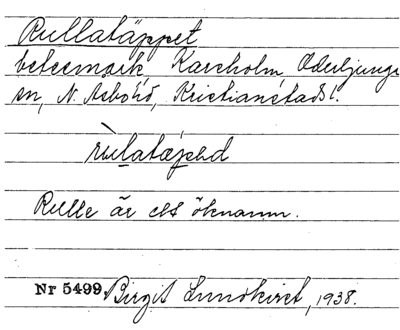 Rullatäppet
betesmark, Karsholm, Oderljunga
sn, N. Åsbo hd, Kristianstads l.
Rulle är ett öknamn.
Nr 5499. Birgit Lundkvist, 1938.